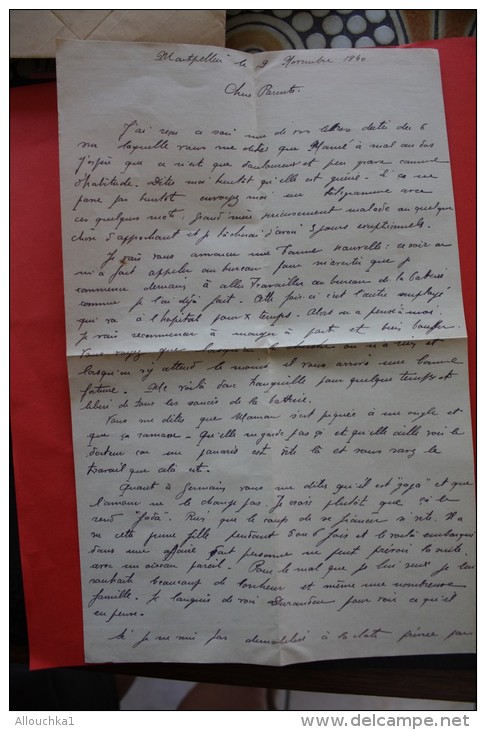 Montpellier le 9 Novembre 1960
Chers Parents.
J'ai reçu ce soir une de vos lettres datée du 6
dans laquelle vous me dites que Mamé a mal au dos
J'espère que ce n'est que douloureux et peu grave comme
d'habitude. Dites moi bientôt qu'elle est guérie. Si ça ne
passe pas bientôt envoyez moi un télégramme avec
ces quelques mots: Grand'mère sérieusement malade ou quelque
chose s'approchant et je tâcherai d'avoir 3 jours exceptionnels.
Je vais vous annoncer une bonne nouvelle: ce soir on
m'a fait appeler au bureau pour m'avertir que je
commence demain à aller travailler au bureau de la batterie
comme je l'ai déjà fait. Cette fois-ci c'est l'autre employé
qui va à l'hôpital pour x temps. Alors on a pensé à moi.
Je vais recommencer à manger à part et bien bouffer.
Vous voyez que
lorsqu'on s'y attend le moins il vous arrive une bonne
fortune. Me voilà donc tranquille pour quelque temps et
libéré de tous les soucis de la batterie.
Vous me dites que Maman s'est piquée à une ongle et
que ça ramasse. Qu'elle ne garde pas ça et qu'elle aille voir le
docteur car un panaris est vite là et vous savez le
travail que cela est.
Quant à Germain vous me dites qu'il est "gaga" et que
l'amour ne le change pas. Je crois plutôt que ça le
rend "fada". Rien que le coup de se fiancer si vite. Il a
vu cette jeune fille pendant 5 ou 6 fois et le voilà embarqué
dans une affaire dont personne ne peut prévoir la suite
avec un oiseau pareil. Pour le mal que je lui veux je leur
souhaite beaucoup de bonheur et même une nombreuse
famille. Je languis de voir Durandeu pour voir ce qu'il
en pense.
Si je ne suis pas démobilisé à la date prévue par
Allouchka1
www.delcampe.net